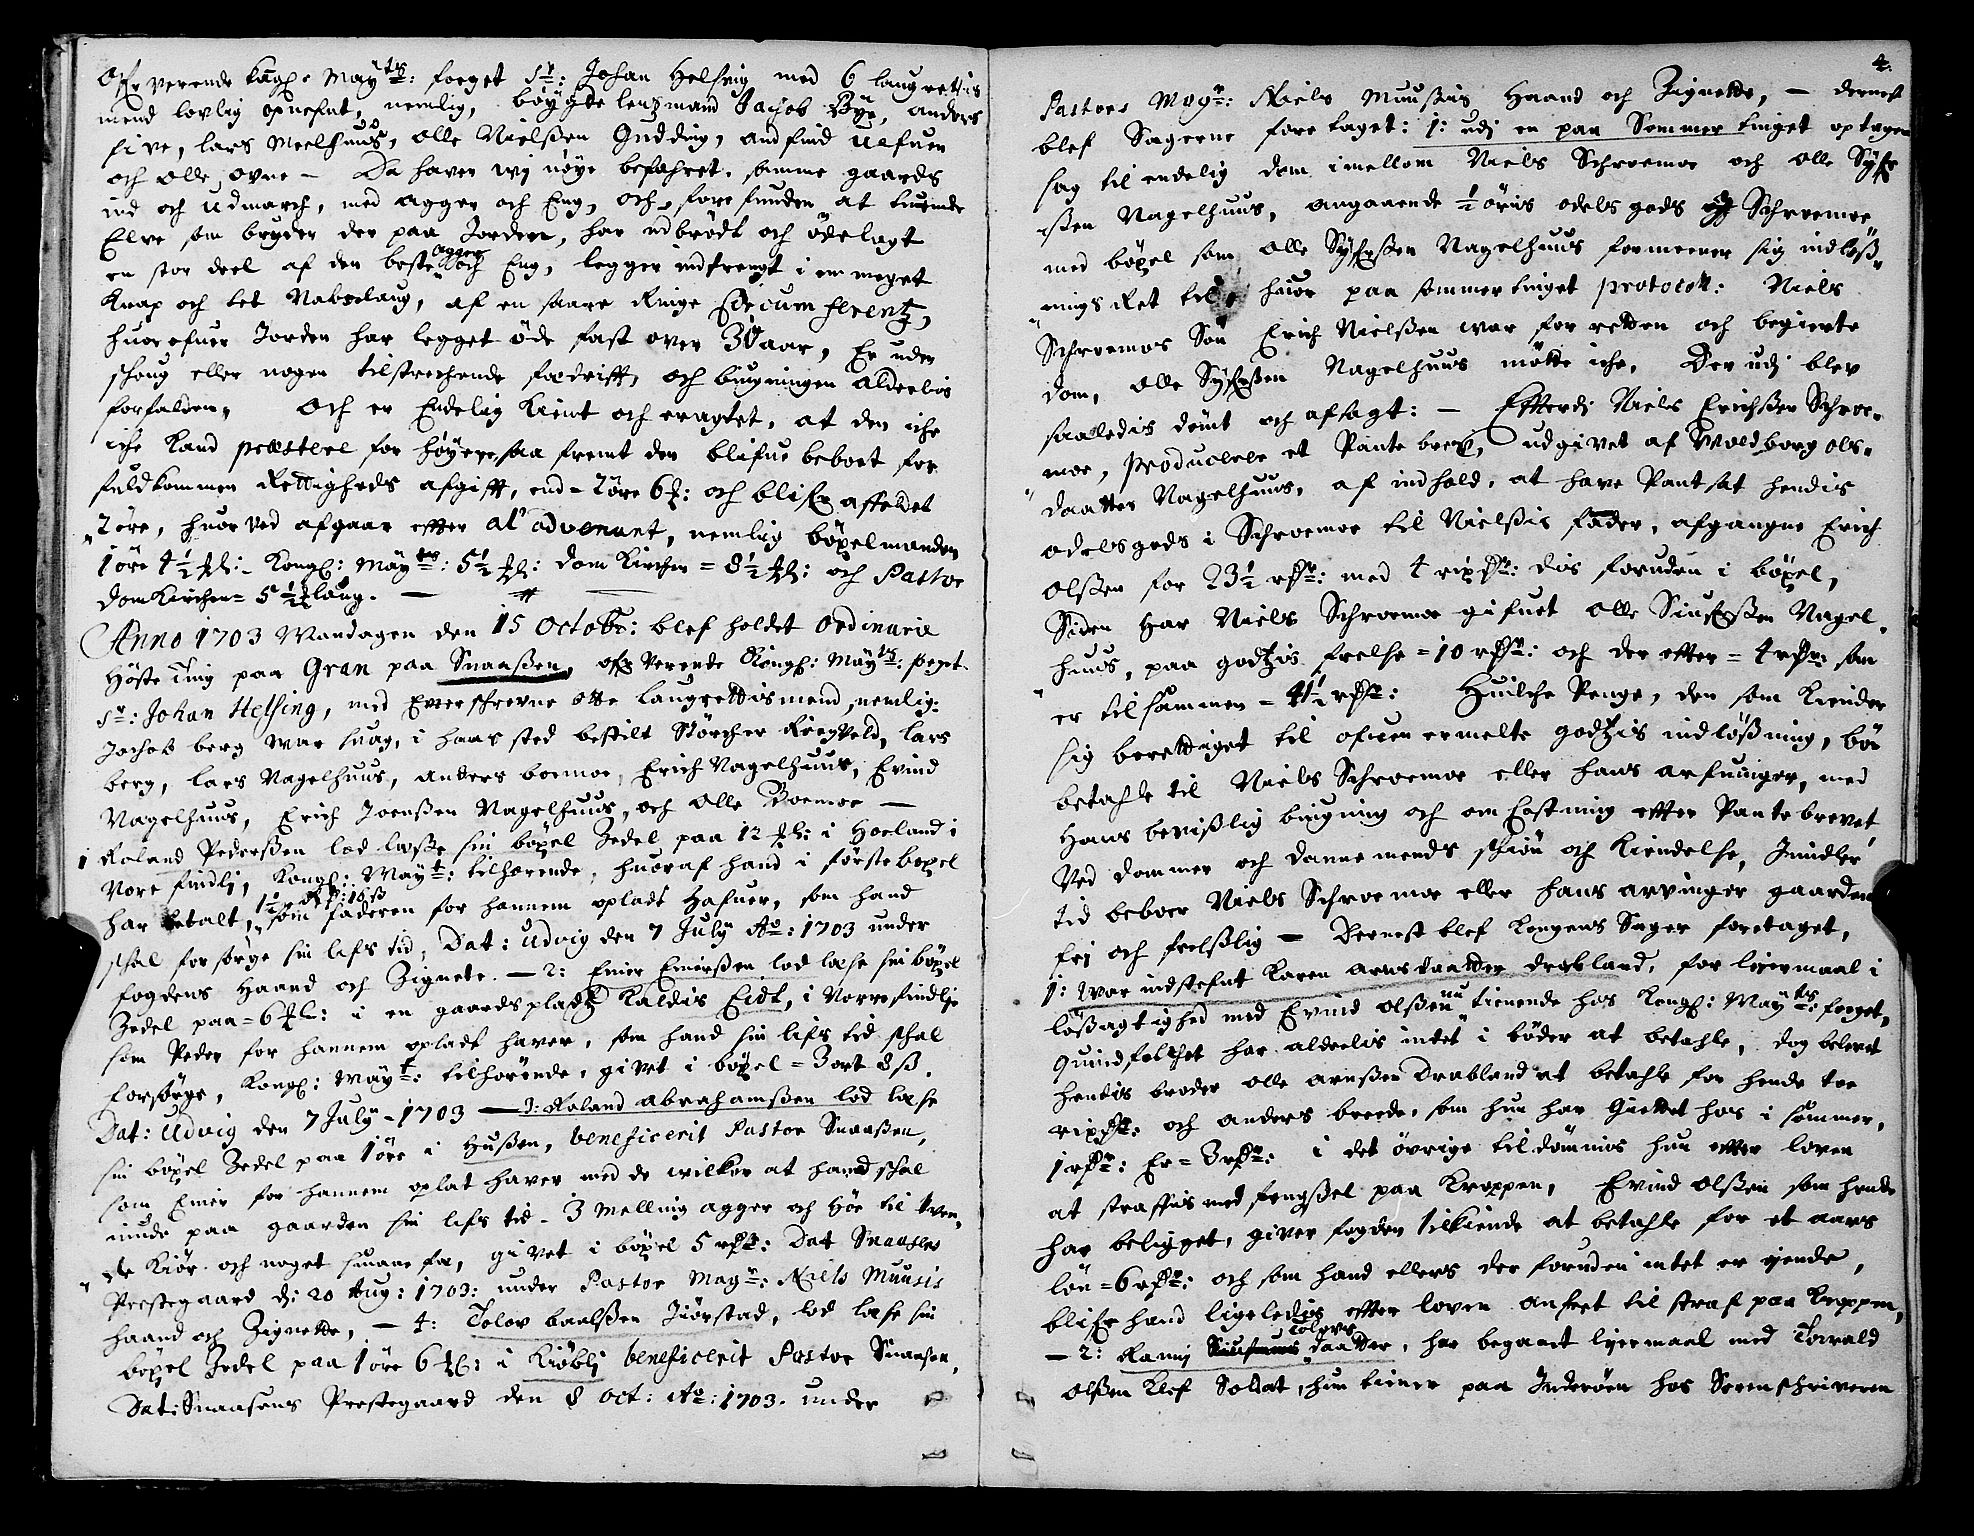 Ofr verende Kongl: May:ts foget Sr: Johan Helsing med 6 laugrettis
mend lovlig opnefnt, nemlig, böygde lensmand Jachob Bye, anders
five, lars Meelhuus, olle Nielsen Gudding, andfind uefuen
och olle ovne – Da haver wj nöye befahret, samme gaards
ind och udmarch, med agger och Eng, och forefunden at tuende
Elve som bryder der paa Jorden, har udbrödt och ödelagt
en stor deel af den beste agger och Eng, legger indtrengt i en meget
knap och tet Nabolaug, af en saare Ringe Circumferentz,
huorefuer Jorden har legget öde fast over 30 aar, Er uden
schoug eller nogen tilstrechende fædrifft, och bugningen aldeelis
forfalden, Och er Endelig kient och eragtet, at den iche
iche kand præsteel for höyere, saa fremt den blifue beboet for
fuldkommen Rettigheds afgifft, end = 2 öre 6 : och blifr affeldet
2 öre, huorved afgaar effter al' advenant, nemlig böxelmanden
1 öre 4½ : Kongl: May:ts: 5½ : domkirchen = 8½ : och Pastor
domkirchen = 5½ laug.
Anno 1703 Mandagen den 15 Octobr: blef holdet Ordinarie
Höste Ting paa Gran paa Snaasen, ofr verende Kongl: May:ts: foget
Sr: Johan Helsing, med Effterschrevne otte laugrettismend, nemlig:
Jachob berg war suag, i hans sted bestilt Störcher Finsveld, lars
berg, lars Nagelhuus, anders boemoe, Erich Nagelhuus, Evind
Nagelhuus, Erich Joensen Nagelhuus, och olle Boemoe –
1 Roland Pedersen lod læse sin böxel Zedel paa 12 : i Hoeland i
Nore findli, Kongl: May:t: tilhörende, huoraf hand i förste böxel
har betalt, 1½ : 16 ß som faderen for hannem opladt hafuer, som hand
schal forsörge sin lifs tid, Dat: Udvig den 7 July Ao: 1703 under
fogdens Haand och Zignete. – 2: Emer Emersen lod læse sin böxel
Zedel paa = 6 : i en gaardsplads Kaldis Eidt, i Norrefindlj
som Peder for hannem opladt haver, som hand sin lifs tid schal
forsörge, Kongl: May:t: tilhörende, givet i böxel = 3 ort 8 ß.
Dat: Udvig den 7 July 1703 – 3: Roland abrahamsen lod læse
sin böxel Zedel paa 1 öre i Husen, beneficerit Pastor Snaasen,
som Emer for hannem oplat haver med de wilkor at hand schal
niude paa gaarden sin lifs tid – 3 Melling agger och Höe til tven-
de Kiör och noget smaae fæ, givet i böxel 5 rdr: Dat Snaasens
Prestegaard d: 20 Aug: 1703: under Pastor Magr: Niels Muusis
haand och Zignette, – 4: Tolov baalsen Jörstad, lod læse sin
böxel Zedel paa 1 öre 6 : i Kiöbli beneficerit Pastor Snaasen,
Dat: Snaasens Prestegaard den 8 Oct: Ao: 1703. under
4.
Pastors Magr: Niels Muusis Haand och Zignette, – dernest
blef Sagerne foretaget: 1: udj en paa Sommertinget optagen
sag til endelig dom imellom Niels Schroemoe och olle Syfr
issen Nagelhuus, angaaende ½ öris odelsgods Schroemoe
med böxel som olle Syfersen Nagelhuus formeener sig indlöß-
nings Ret til, huor paa sommertinget protocoll: Niels
Schroemos Sön Erich Nielsen war for retten och begierte
dom, olle Syfersen Nagelhuus mötte iche. Der udj blev
saaledis dömt och afsagt: – Effterdj Niels Erichsen Schroe-
moe, producere et Pante brev, udgivet af Woldborg ols-
daatter Nagelhuus, af indhold, at have Pantsat hendis
odelsgods i Schroemoe til Nielsis fader, afgangne Erich
olsen for 23½ rdr: med 4 rixdr: dis foruden i böxel,
Siden har Niels Schroemoe gifuet olle Siufersen Nagel-
huus, paa godzis frelse = 10 rdr: och der effter = 4 rdr: som
er tilsammen = 41½ rdr: Huilche Penge, den som kiender
sig berettiget til ofuenermelte godzis indlösning, bör
betahle til Niels Schroemoe eller hans arfuinger, med
Hans bevislig bugning och omkostning effter Pantebrevet
Ved dommer och dannemends schiön och kiendelse, Imidler
tid beboer Niels Schroemoe eller hans arvinger gaarden
frj och frelslig – Dernest blef Kongens Sager foretaget,
1: War indstefnt Karen arnsdaatter drabland, for leiermaal i
lößagtighed med Evind olsen nu tienende hos Kongl: May:ts: foget,
Quindfolchet har aldeelis intet i böder at betahle, dog belovet
hendis broder olle arnsen Drabland at betahle for hende toe
rixdr: och anders brede, som hun har giettet hos i sommer,
1 rdr: Er = 3 rdr: i det övrige tildömmis hun effter loven
at straffis med fengsel paa kroppen, Evind olsen som hende
har beligget, giver fogden tilkiende at betahle for et aars
lön = 6 rdr: och som hand ellers der foruden intet er eyende,
blifr hand ligeledis effter loven anseet til straf paa kroppen,
– 2: Ranj Tolovs daatter, har begaaet leiermaal med Torvald
olsen Klef Soldat, hun tiener paa Inderöen hos Sorenschriveren